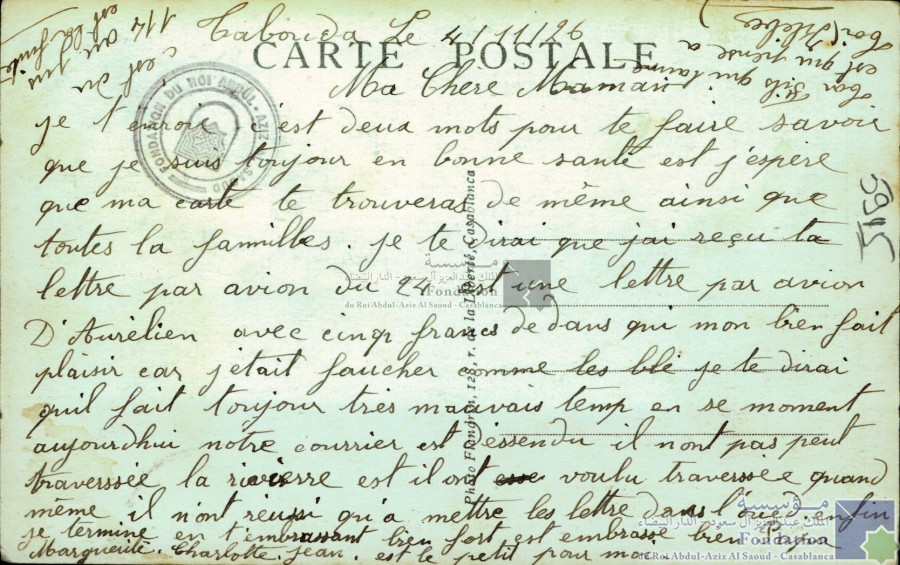 Tabouda Le 4/11/26
CARTE POSTALE
Ma Chere Maman.
je t'envoie c'est deux mots pour te faire savoir
que je suis toujour en bonne santé est j'espère
que ma carte te trouveras de même ainsi que
toutes la familles. je te dirai que j'ai reçu ta
lettre par avion du 24 est une lettre par avion
D'Aurélien avec cinq francs de dans qui mon bien fait
plaisir car j'etait faucher comme les blé je te dirai
quil fait toujour très mauvais temp en se moment
aujourdhui notre courrier est dessendu il nont pas peut
traverssée la rivierre est il ont voulu traverssée quand
même il n'ont reussi qu'a mettre les lettre dans l'oued enfin
je termine en t'embrassant bien fort est embrasse bien
Marguerite. Charlotte. Jean. est le petit pour moi.
ton fils qui t'aime
est qui pense a
toi
114 au jus
c'est du
est la fuite
5915
Photo Flandrin, 128, r. de la Liberté, Casablanca
FONDATION DU ROI ABDUL-AZIZ
مؤسسة
الملك عبد العزيز آل سعود - الدار البيضاء
Fondation
du Roi Abdul-Aziz Al Saoud - Casablanca
مؤسسة
الملك عبد العزيز آل سعود - الدار البيضاء
Fondation
du Roi Abdul-Aziz Al Saoud - Casablanca